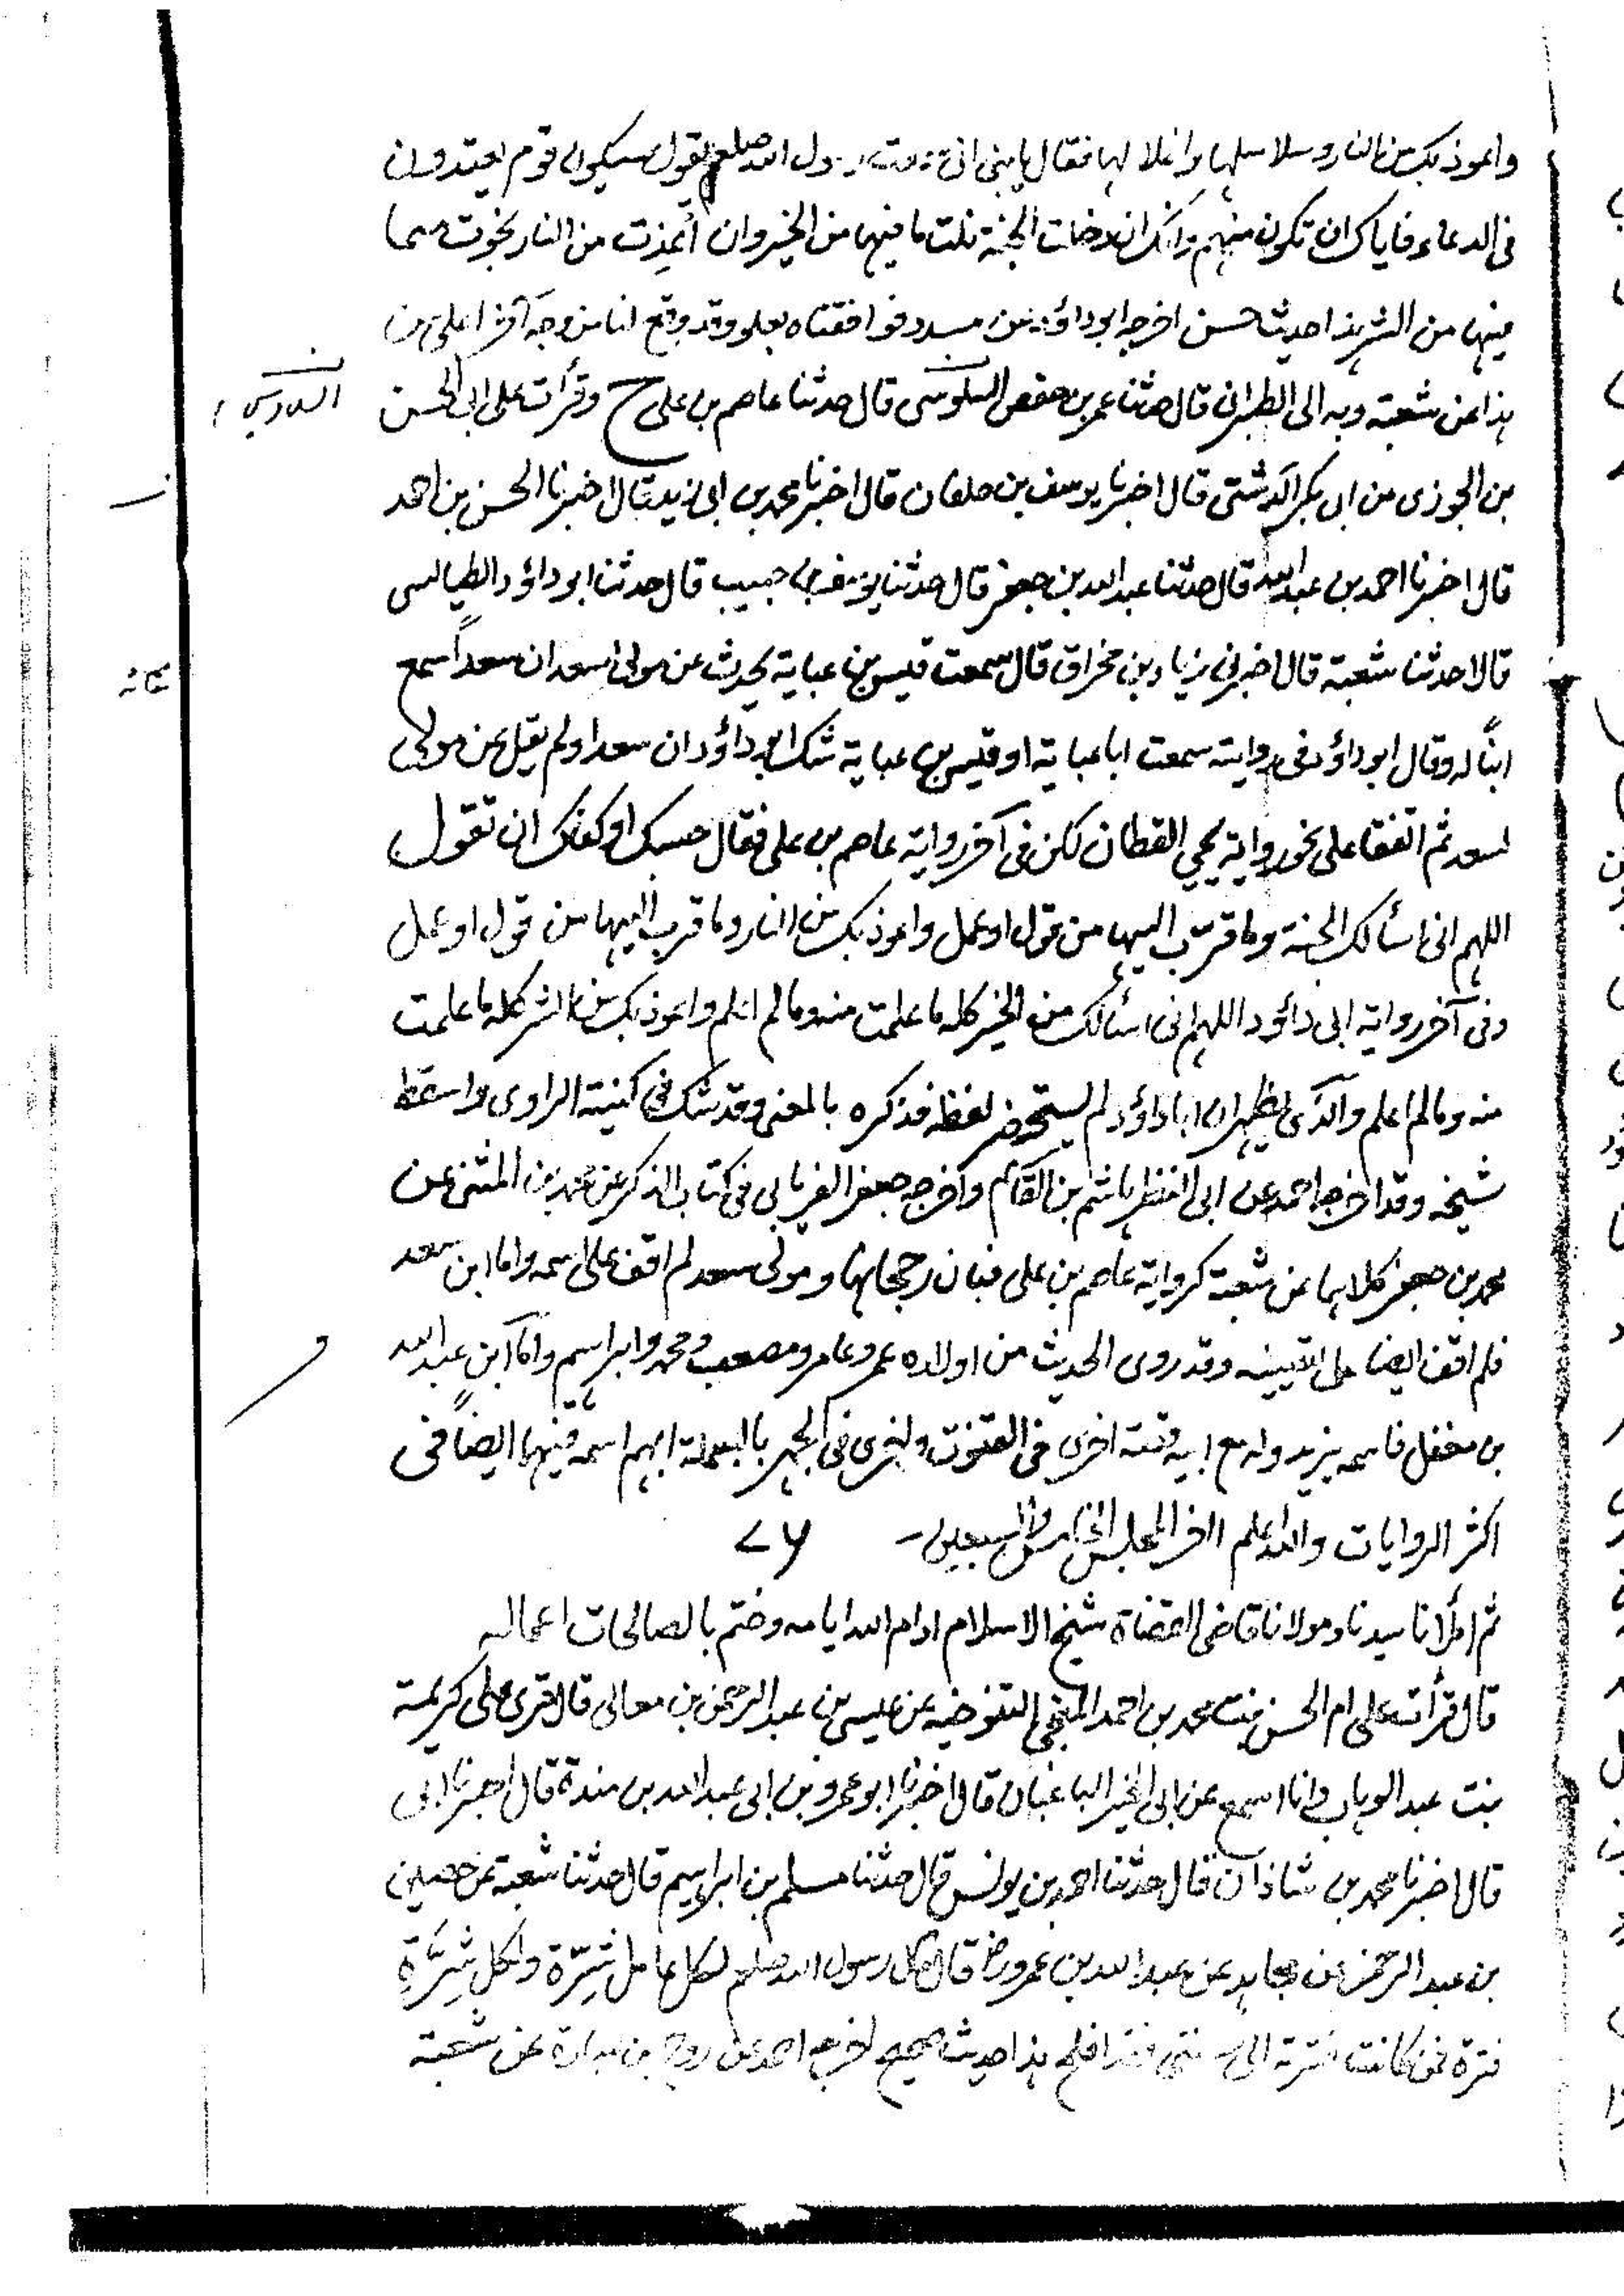 واعوذ بك من النار وسلاسلها واغلالها فقال يا بنى انى سمعت رسول الله صلعم يقول سيكون قوم يعتدون
فى الدعاء فاياك ان تكون منهم وانك ان دخلت الجنة نلت ما فيها من الخير وان اُعِذت من النار نجوت مما
فيها من الشر هذا حديث حسن اخرجه ابو داؤد عن مسدد فوافقناه بعلو وقد وقع لنا من وجه آخر اعلى من
هذا عن شعبة وبه الى الطبرانى قال حدثنا عمر بن حفص السدوسى قال حدثنا عاصم بن على ح وقرأت على ابى الحسن
السدوسي
بن الجوزى عن ابى بكر الدشتى قال اخبرنا يوسف بن خليل قال اخبرنا محمد بن ابى زيد قال اخبرنا الحسن بن احمد
قال اخبرنا احمد بن عبد الله قال حدثنا عبد الله بن جعفر قال حدثنا يونس بن حبيب قال حدثنا ابو داؤد الطيالسى
قالا حدثنا شعبة قال اخبرنى زياد بن مخراق قال سمعت قيس بن عباية يحدث عن مولى لسعد ان سعداً سمع
ابناً له وقال ابو داؤد فى روايته سمعت ابا عباية او قيس بن عباية شك ابو داؤد ان سعدا ولم يقل عن مولى
لسعد ثم اتفقا على نحو رواية يحيى القطان لكن فى آخر رواية عاصم بن على فقال حسبك او كفاك ان تقول
اللهم انى اسألك الجنة وما قرّب اليها من قول او عمل واعوذ بك من النار وما قرب اليها من قول او عمل
وفى آخر رواية ابى داؤد اللهم انى اسألك من الخير كله ما علمت منه وما لم اعلم واعوذ بك من الشر كله ما علمت
منه وما لم اعلم والذى يظهر ان ابا داؤد لم يستحضر لفظه فذكره بالمعنى وقد شك فى كنية الراوى واسقط
شيخه وقد اخرجه احمد عن ابى النضر هاشم بن القاسم واخرجه جعفر الفريابى فى كتاب الذكر عن محمد بن المثنى عن
محمد بن جعفر كلاهما عن شعبة كرواية عاصم بن على فبان رجحانها ومولى سعد لم اقف على اسمه واما ابن سعد
فلم اقف ايضا على تعيينه وقد روى الحديث من اولاده عمر وعامر ومصعب ومحمد وابراهيم واما ابن عبد الله
بن مغفل فاسمه يزيد وله مع ابيه قصة اخرى فى القنوت واخرى فى الجهر بالبسملة ابهم اسمه فيهما ايضاً فى
اكثر الروايات والله اعلم آخر المجلس الخامس والسبعين ٧٦
ثم املانا سيدنا ومولانا قاضى القضاة شيخ الاسلام ادام الله ايامه وختم بالصالحات اعماله
قال قرأت على ام الحسن بنت محمد بن احمد المنجى التنوخية عن عيسى بن عبد الرحمن بن معالى قال قرى على كريمة
بنت عبد الوهاب وانا اسمع عن ابى الخير الباغبان قال اخبرنا ابو عمرو بن ابى عبد الله بن مندة قال اخبرنا ابى
قال اخبرنا محمد بن شاذان قال حدثنا احمد بن يونس قال حدثنا مسلم بن ابراهيم قال حدثنا شعبة عن حصين
بن عبد الرحمن عن مجاهد عن عبد الله بن عمرو رض قال قال رسول الله صلعم لكل عامل شِرّة ولكل شِرَّةٍ
فترة فمن كانت فترته الى سنتى فقد افلح هذا حديث صحيح اخرجه احمد عن روح بن عبادة عن شعبة